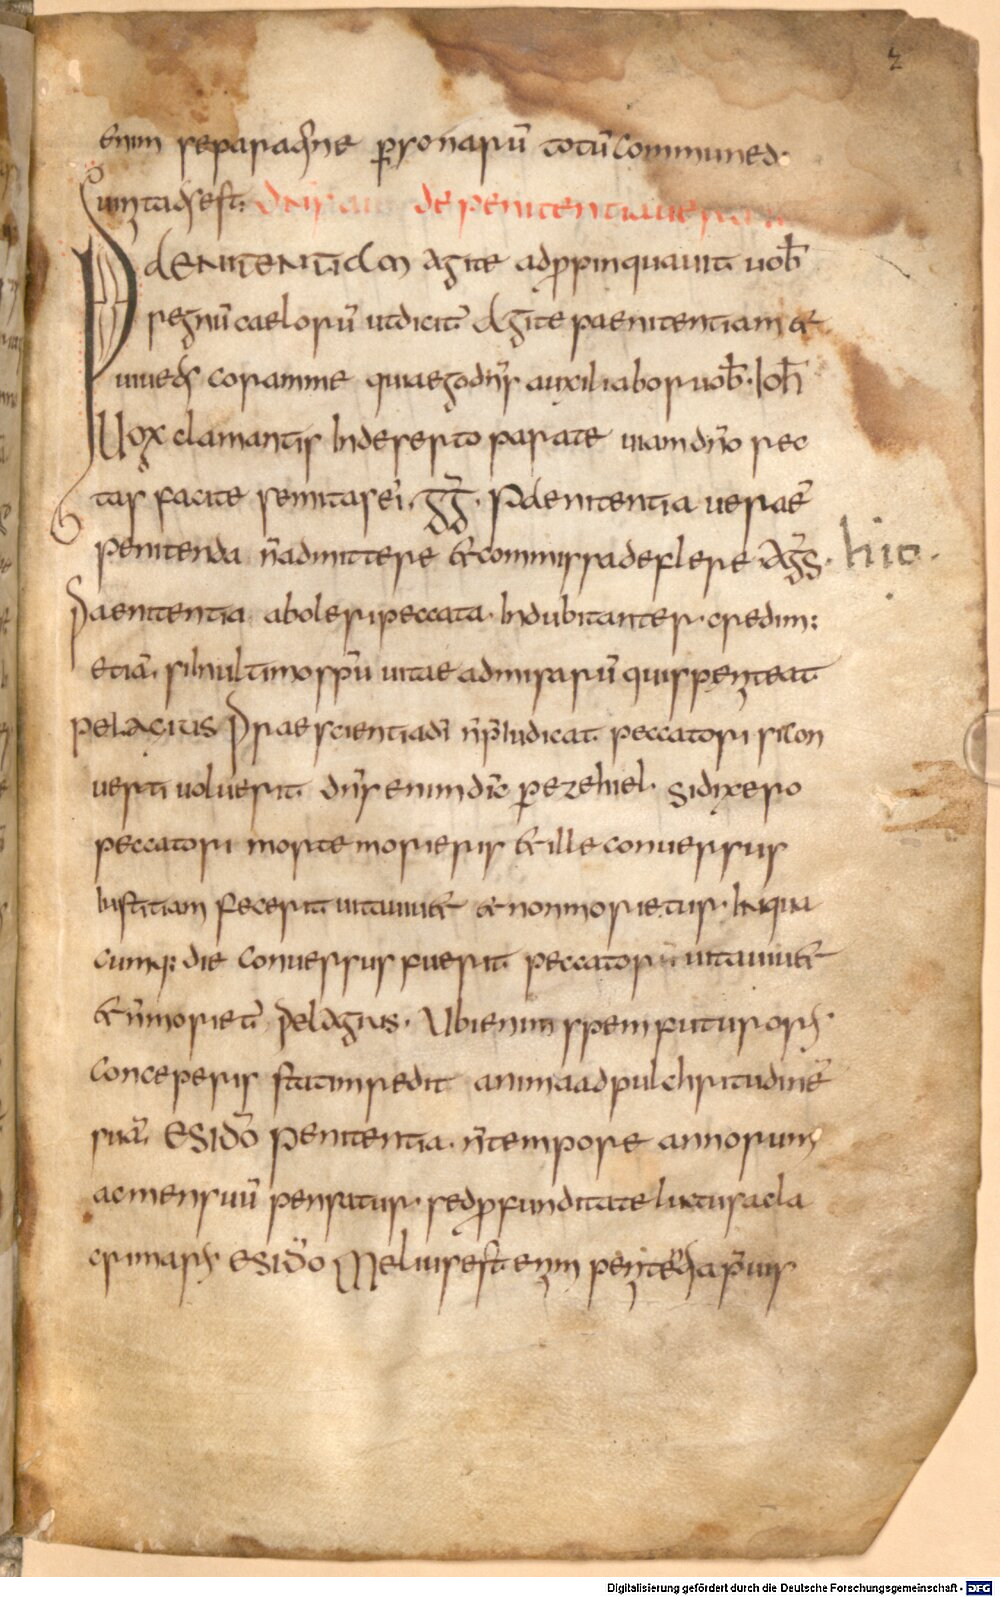 2
enim separatione p̱sonarū totū commune d
iuinitatis est. de penitentia
PAENITENTIAM Agite adp̱pinquauit uob̄
regnū caelorū ut dicit̄ Agite paenitentiam &
uiuetis coram me quia ego dn̄s auxiliabor uob̄. Ioh̄
Uox clamantis In deserto parate uiam dn̄o rec
tas facite semitas ei. gḡ. Paenitentia uera ē
penitenda n̄ admittere & commissa deflere. Aḡs.
hic.
Paenitentia aboleri peccata. Indubitanter. credim:
etiā. si In ultimo sp̄u uitae admissorū quis peniteat
PELAGIUS Praescientia dī n̄ p̄Iudicat peccatori si con
uerti uoluerit. dn̄s enim dīc p̱ ezehiel. Si dixero
peccatori morte morieris & ille conuersus
Iustitiam fecerit uita uiu& & non morietur. In qua
cumq: die conuersus fuerit peccator uita uiu&
& n̄ moriet̄ PelAgius. Ubi enim spem futurorum
conceperis statim redit anima ad pulchritudinē
suā. ESIDO Penitentia. n̄ tempore annorum
ac mensuū pensatur. sed p̱funditate luctus ac la
crimarum ESIDO Melius est enim penitentia p̄uis
Digitalisierung gefördert durch die Deutsche Forschungsgemeinschaft - DFG